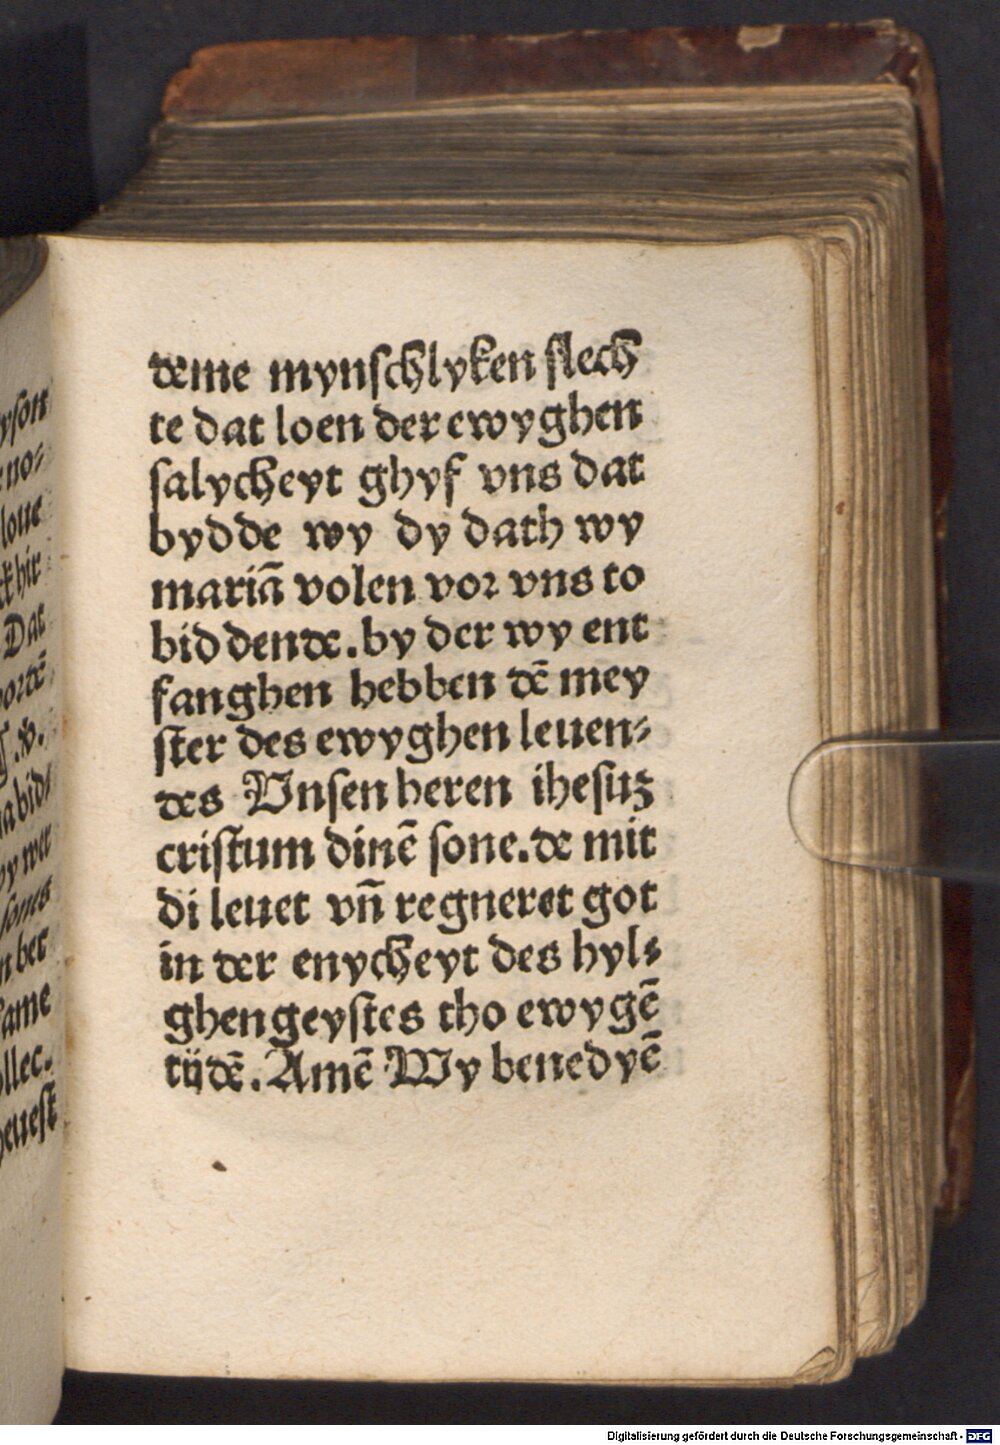 deme mynschlyken slech
te dat loen der ewyghen
salycheyt ghyf vns dat
bydde wy dy dath wy
mariā volen vor vns to
biddende. by der wy ent
fanghen hebben dē mey
ster des ewyghen leuen⸗
des Vnsen heren ihesuʒ
cristum dinē sone. de mit
di leuet vn̄ regneret got
in der enycheyt des hyl⸗
ghen geystes tho ewygē
tijdē. Amē Wy benedyē
yson
no⸗
loue
hir
Dat
ortē
bid
wy wer
sones
n bet
ame
llec.
euest
Digitalisierung gefördert durch die Deutsche Forschungsgemeinschaft - DFG